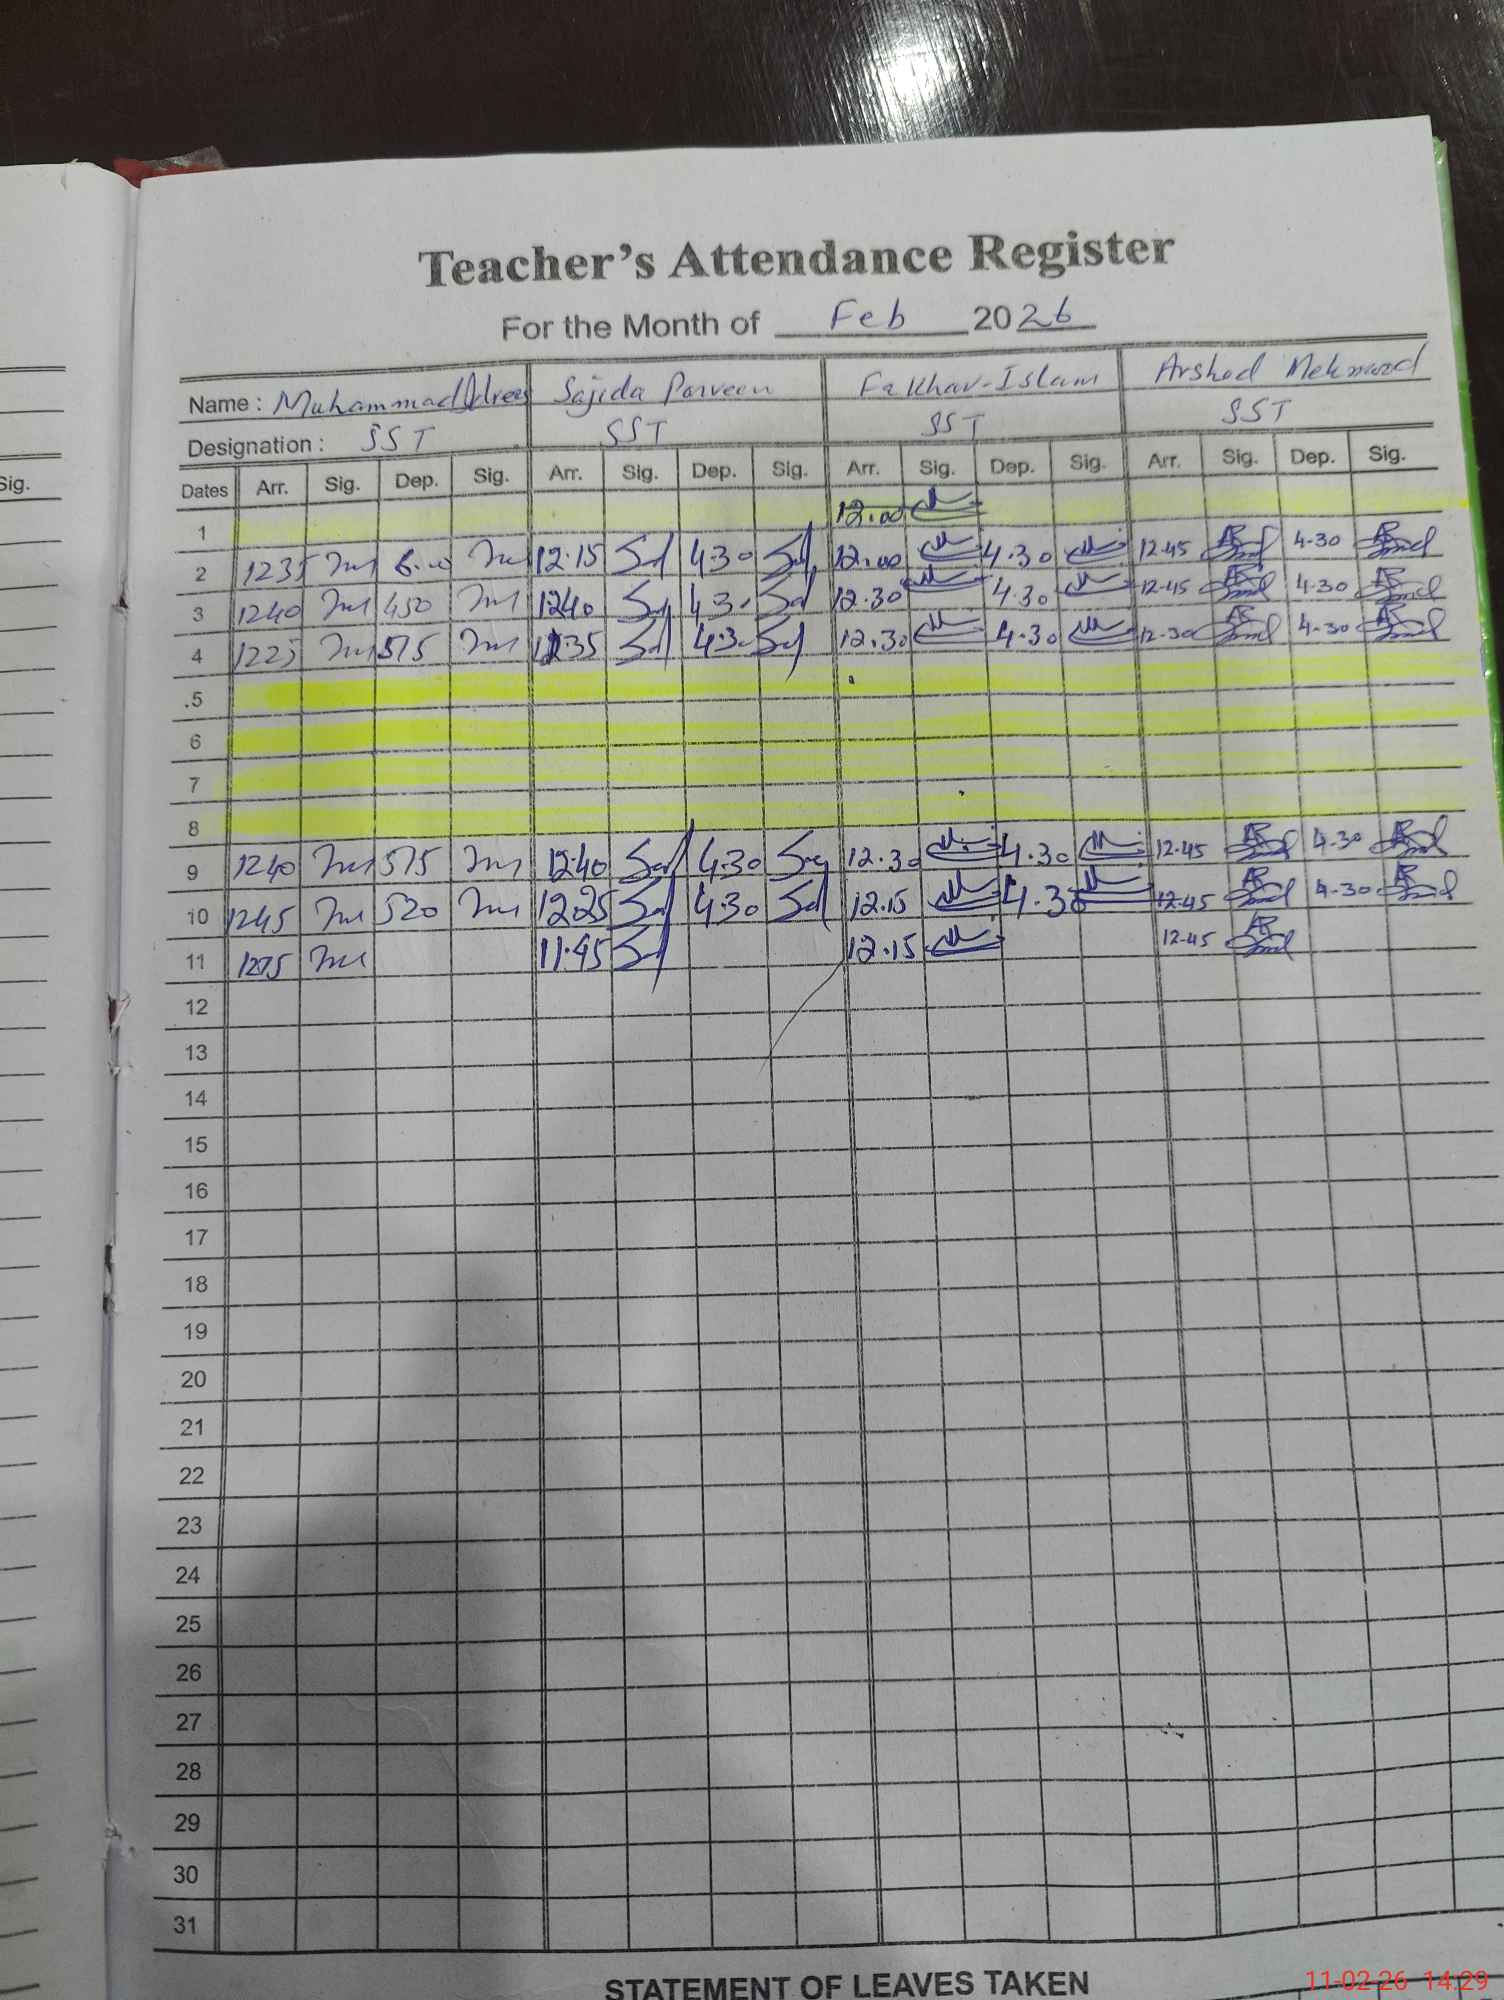 Sig.
Teacher's Attendance Register
For the Month of Feb 2026
Name : Muhammad Idrees Sajida Parveen Fakhar-Islam Arshad Mehmood
Designation : SST SST SST SST
Dates Arr. Sig. Dep. Sig. Arr. Sig. Dep. Sig. Arr. Sig. Dep. Sig. Arr. Sig. Dep. Sig.
1 12.00
2 1235 12.15 4.30 12.00 4.30 12.45 4.30
3 1240 450 1240 4.30 12.30 4.30 12.45 4.30
4 1225 515 12.35 4.30 12.30 4.30 12.30 4.30
5
6
7
8
9 1240 515 12.40 4.30 12.30 4.30 12.45 4.30
10 1245 520 1225 4.30 12.15 4.30 12.45 4.30
11 11.45 12.15 12.45
12
13
14
15
16
17
18
19
20
21
22
23
24
25
26
27
28
29
30
31
STATEMENT OF LEAVES TAKEN
11-02-26 14:29